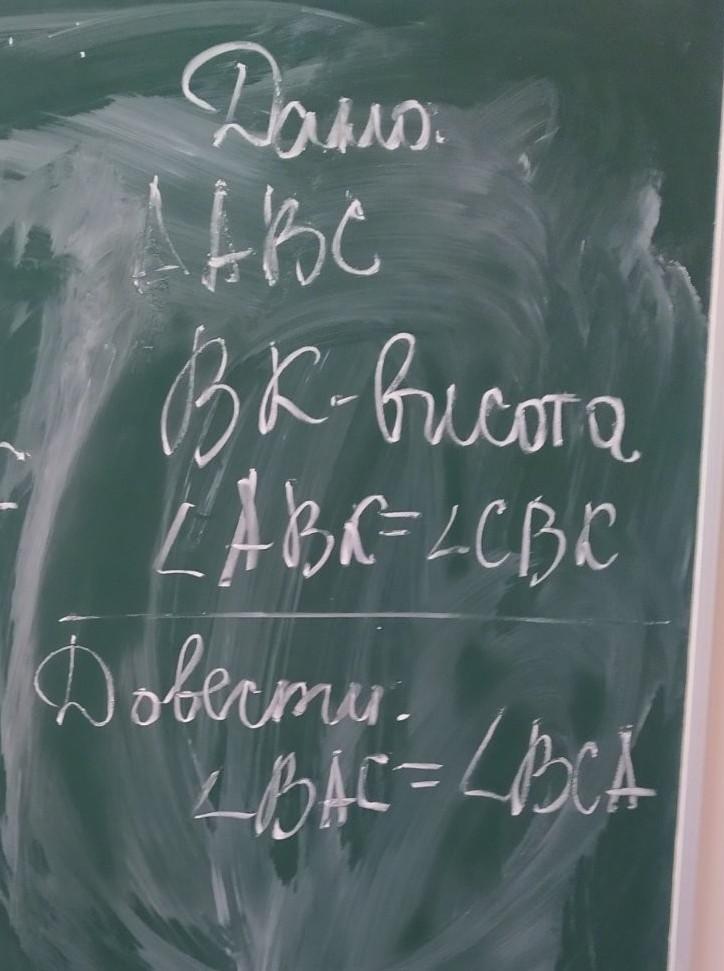 Дано:
ΔABC
BK-висота
∠ABK=∠CBK
Довести:
∠BAC=∠BCA